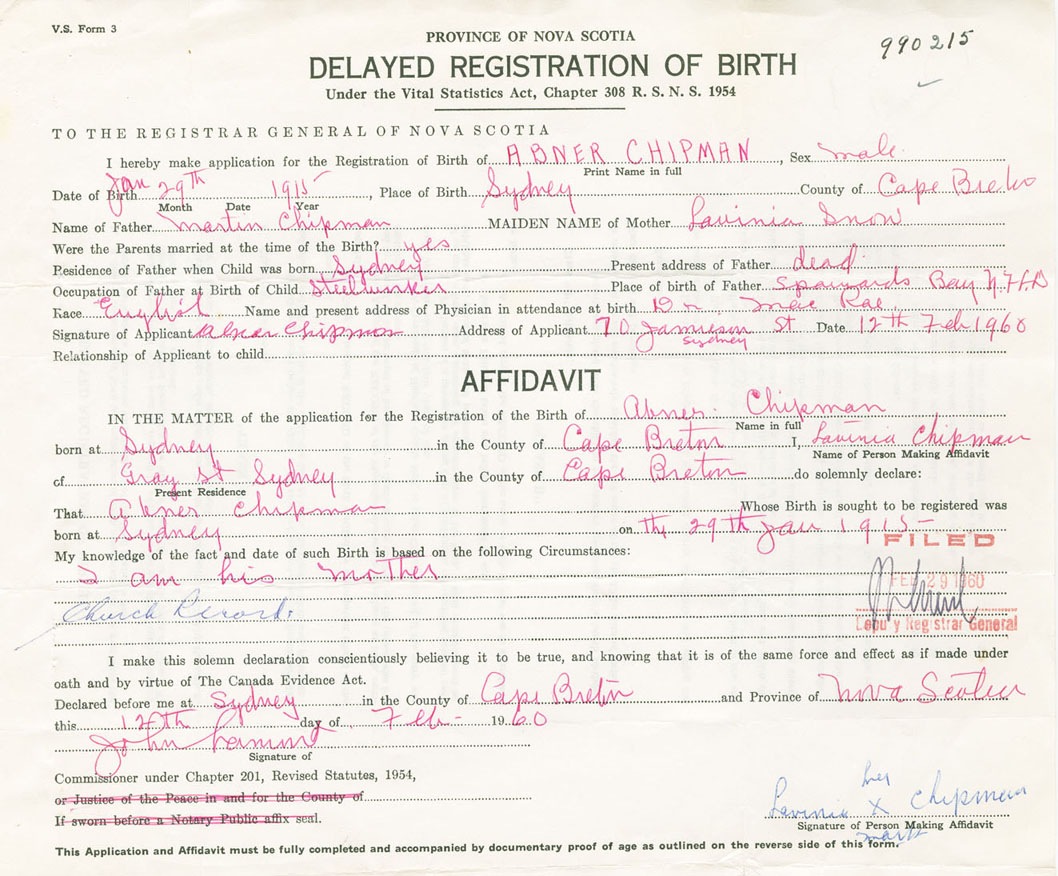 V.S. Form 3
PROVINCE OF NOVA SCOTIA
990215
DELAYED REGISTRATION OF BIRTH
Under the Vital Statistics Act, Chapter 308 R. S. N. S. 1954
TO THE REGISTRAR GENERAL OF NOVA SCOTIA
I hereby make application for the Registration of Birth of ABNER CHIPMAN, Sex male
Print Name in full
Date of Birth Jan 29th 1915, Place of Birth Sydney County of Cape Breton
Month Date Year
Name of Father Martin Chipman MAIDEN NAME of Mother Lavinia Snow
Were the Parents married at the time of the Birth? yes
Residence of Father when Child was born Sydney Present address of Father dead
Occupation of Father at Birth of Child Place of birth of Father Spaniards Bay Nfld
Race English Name and present address of Physician in attendance at birth Dr. Mac Rae
Signature of Applicant Abner Chipman Address of Applicant 70 Jamieson St Date 12th Feb 1960
Sydney
Relationship of Applicant to child
AFFIDAVIT
IN THE MATTER of the application fer the Registration of the Birth of Abner Chipman
Name in full
born at Sydney in the County of Cape Breton I, Lavinia Chipman
Name of Person Making Affidavit
of Gray St Sydney in the County of Cape Breton do solemnly declare:
Present Residence
That Abner Chipman Whose Birth is sought to be registered was
born at Sydney on The 29th Jan 1915
My knowledge of the fact and date of such Birth is based on the following Circumstances:
FILED
I am his mother
FEB 29 1960
Church Records
Deputy Registrar General
I make this solemn declaration conscientiously believing it to be true, and knowing that it is of the same force and effect as if made under
oath and by virtue of The Canada Evidence Act.
Declared before me at Sydney in the County of Cape Breton and Province of Nova Scotia
this 12th day of Feb- 1960
John
Signature of
Commissioner under Chapter 201, Revised Statutes, 1954,
or Justice of the Peace in and for the County of
If sworn before a Notary Public affix seal.
her
Lavinia X Chipman
mark
Signature of Person Making Affidavit
This Application and Affidavit must be fully completed and accompanied by documentary proof of age as outlined on the reverse side of this form.